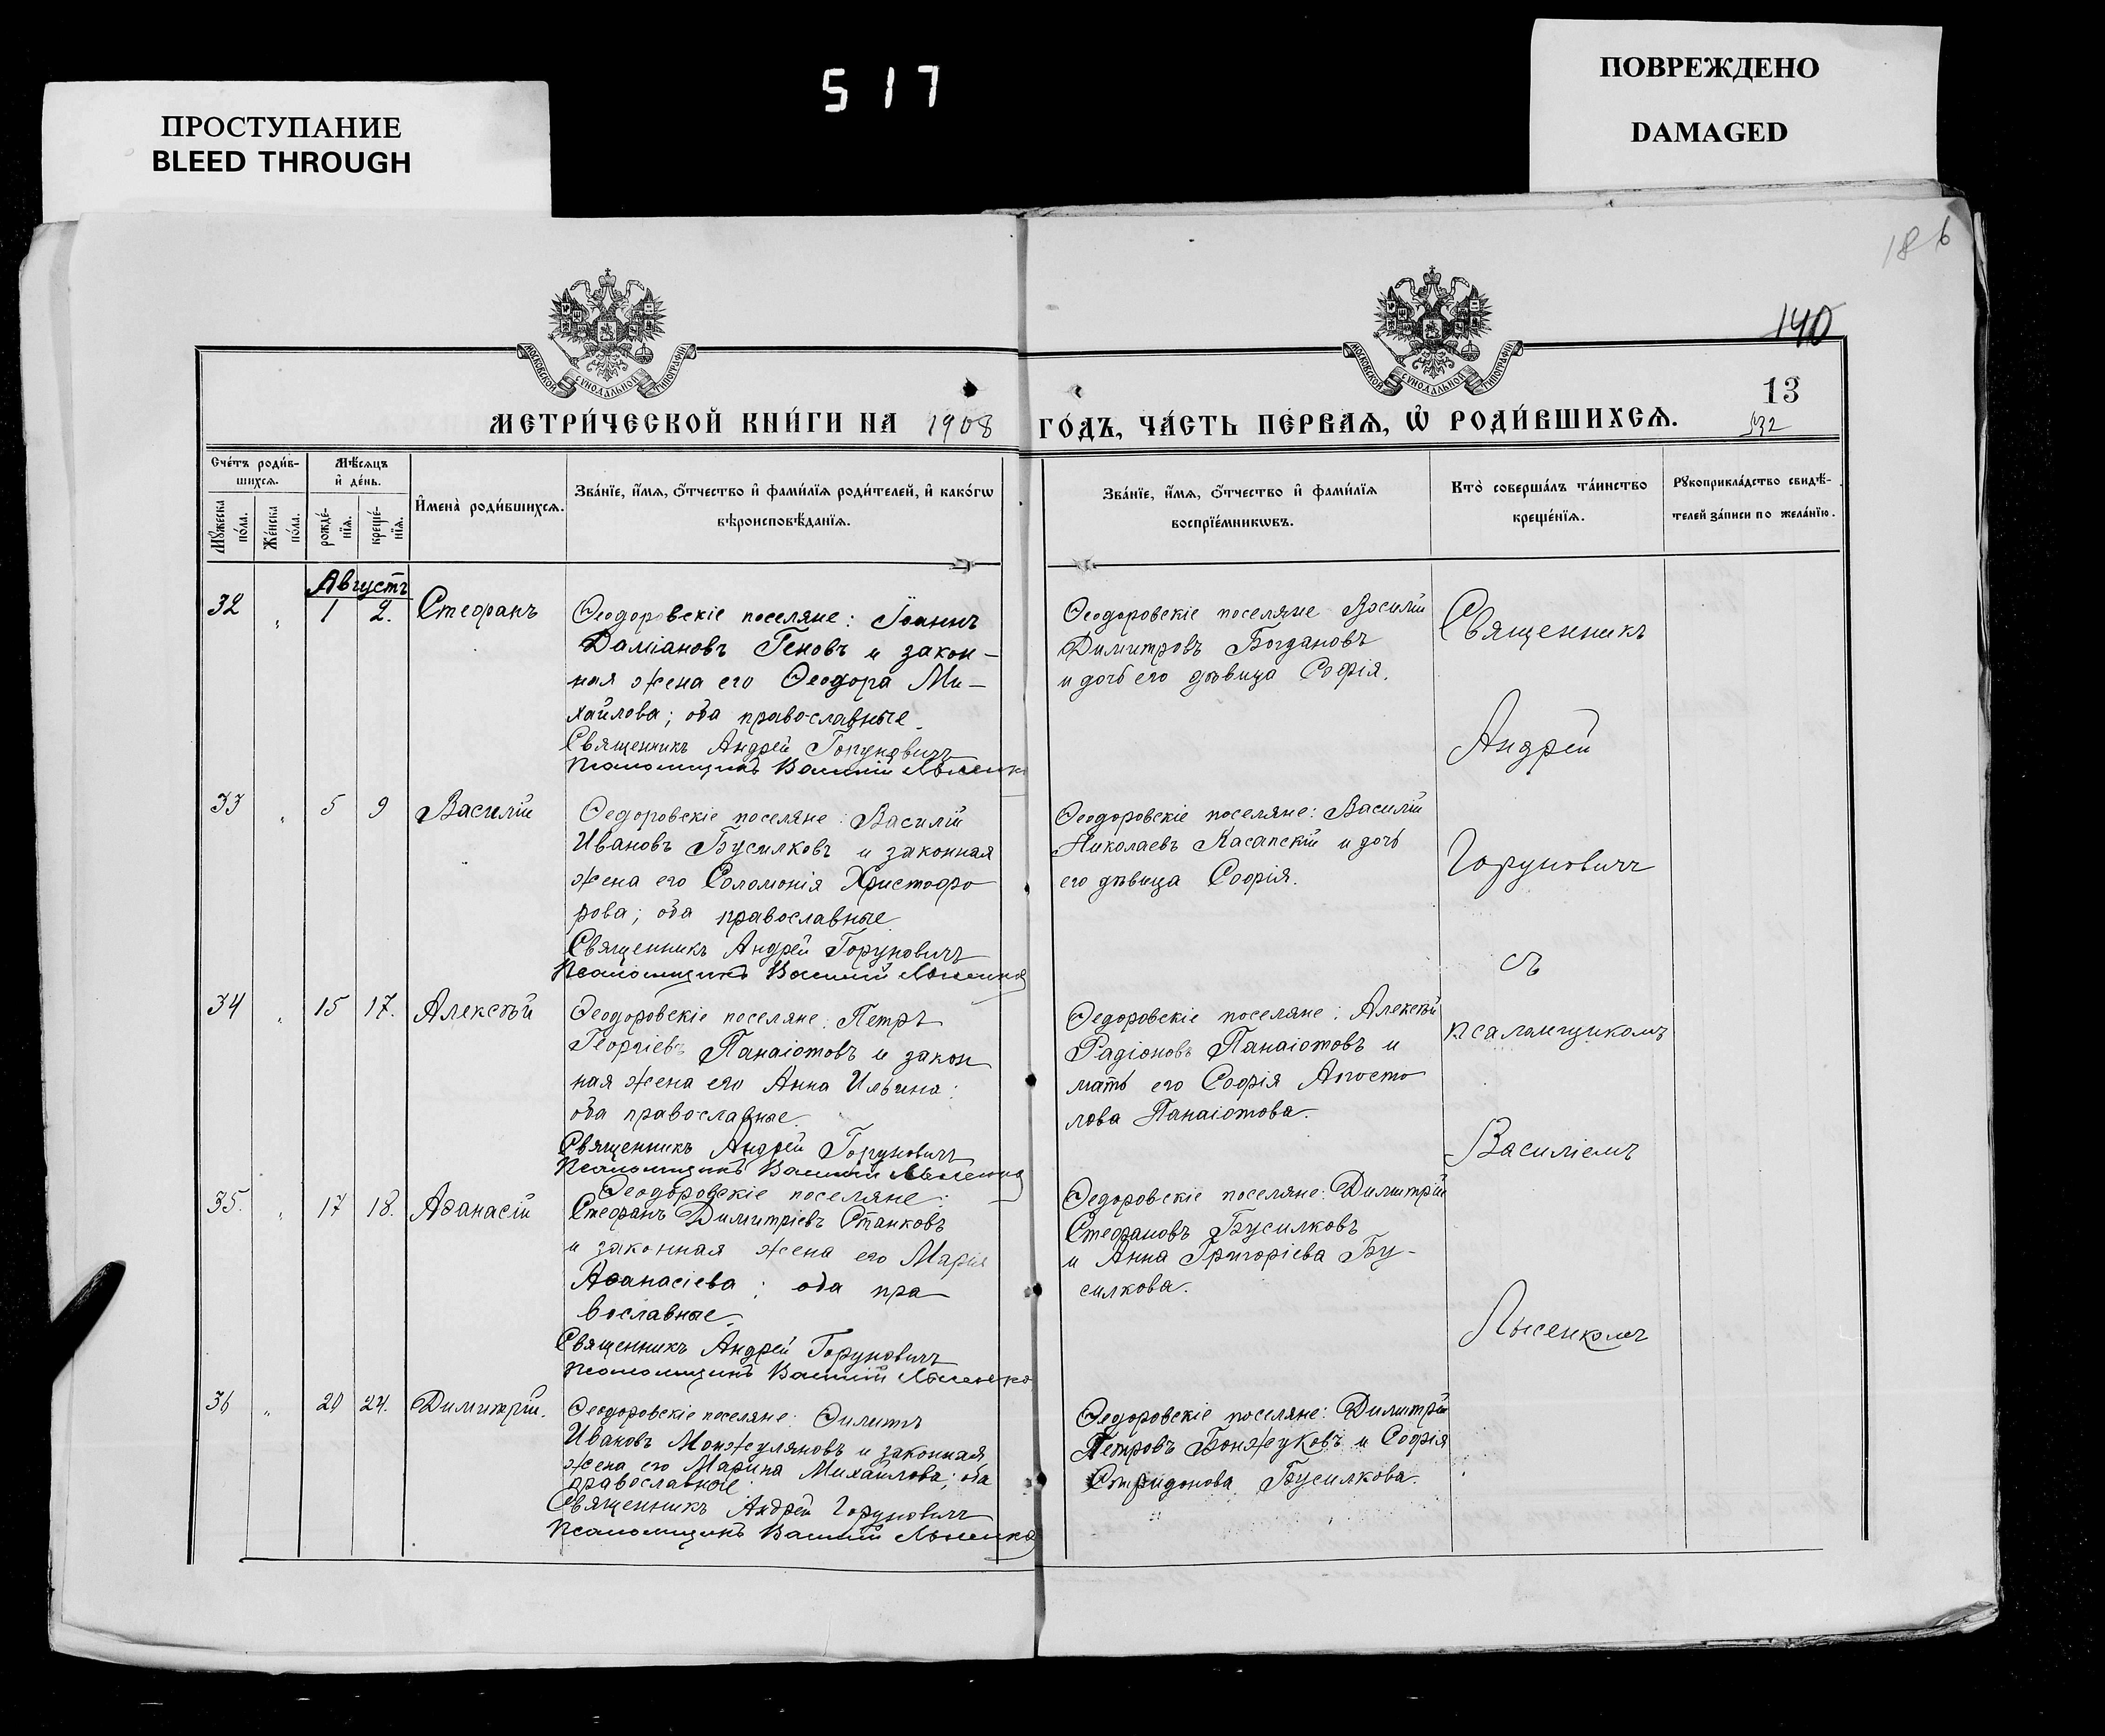 ПРОСТУПАНИЕ
BLEED THROUGH
517
ПОВРЕЖДЕНО
DAMAGED
186
140
13
МОСКОВСКОЙ СѴНОДАЛЬНОЙ ТИПОГРАФІИ
МОСКОВСКОЙ СѴНОДАЛЬНОЙ ТИПОГРАФІИ
МЕТРИ́ЧЕСКОЙ КНИ́ГИ НА 1908 ГО́ДЪ, ЧА́СТЬ ПЕ́РВАЯ, Ѡ РОДИ́ВШИХСѦ. 532
Сче́тъ роди́в-
шихсѧ.
Мꙋ́жеска
по́ла.
Же́нска
по́ла.
Мѣ́сѧцъ
и҆ де́нь.
рожде́-
нїѧ.
креще́-
нїѧ.
И҆мена̀ роди́вшихсѧ.
Зва́нїе, и҆́мѧ, ѻ҆́тчество и҆ фами́лїѧ роди́телей, и҆ како́гѡ
вѣроисповѣ́данїѧ.
Зва́нїе, и҆́мѧ, ѻ҆́тчество и҆ фами́лїѧ
воспрїе́мникѡвъ.
Кто̀ соверша́лъ та́инство
креще́нїѧ.
Рꙋкоприкла́дство свидѣ́-
телей за́писи по жела́нїю.
Августъ
32 " 1 2. Стефанъ
Ѳеодоровскіе поселяне: Іоаннъ
Даміановъ Геновъ и закон-
ная жена его Ѳеодора Ми-
хайлова; оба православные.
Священникъ Андрей Горуновичъ
Псаломщикъ Василій Лысенко
Ѳеодоровскіе поселяне Василій
Димитровъ Богдановъ
и дочь его дѣвица Софія.
33 " 5 9 Василій
Ѳедоровскіе поселяне: Василій
Ивановъ Бусилковъ и законная
жена его Соломонія Христофо
рова; оба православные
Священникъ Андрей Горуновичъ
Псаломщикъ Василій Лысенко
Ѳеодоровскіе поселяне: Василій
Николаевъ Касапскій и дочь
его дѣвица Софія.
34 " 15 17. Алексѣй
Ѳеодоровскіе поселяне: Петръ
Георгіевъ Панаіотовъ и закон
ная жена его Анна Ильина:
оба православные.
Священникъ Андрей Горуновичъ
Псаломщикъ Василій Лысенко
Ѳедоровскіе поселяне: Алексѣй
Радіоновъ Панаіотовъ и
мать его Софія Апосто
лова Панаіотова.
35. " 17 18. Аѳанасій
Ѳеодоровскіе поселяне:
Стефанъ Димитріевъ Станковъ
и законная жена его Марія
Аѳанасіева; оба пра
вославные.
Священникъ Андрей Горуновичъ
Псаломщикъ Василій Лысенко
Ѳедоровскіе поселяне: Димитрій
Стефановъ Бусилковъ
и Анна Григоріева Бу-
силкова.
36 " 20 24. Димитрій.
Ѳеодоровскіе поселяне: Филиппъ
Ивановъ Монжуляновъ и законная
жена его Марина Михайлова; оба
православные
Священникъ Андрей Горуновичъ
Псаломщикъ Василій Лысенко
Ѳедоровскіе поселяне: Димитрій
Петровъ Бонжуковъ и Софія
Спиридонова Бусилкова.
Священникъ
Андрей
Горуновичъ
съ
псаломщикомъ
Василіемъ
Лысенкомъ